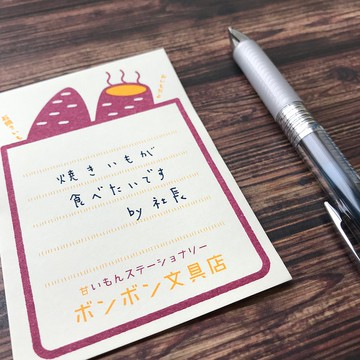 焼きいもが
食べたいです
by 社長
甘いもんステーショナリー
ボンボン文具店